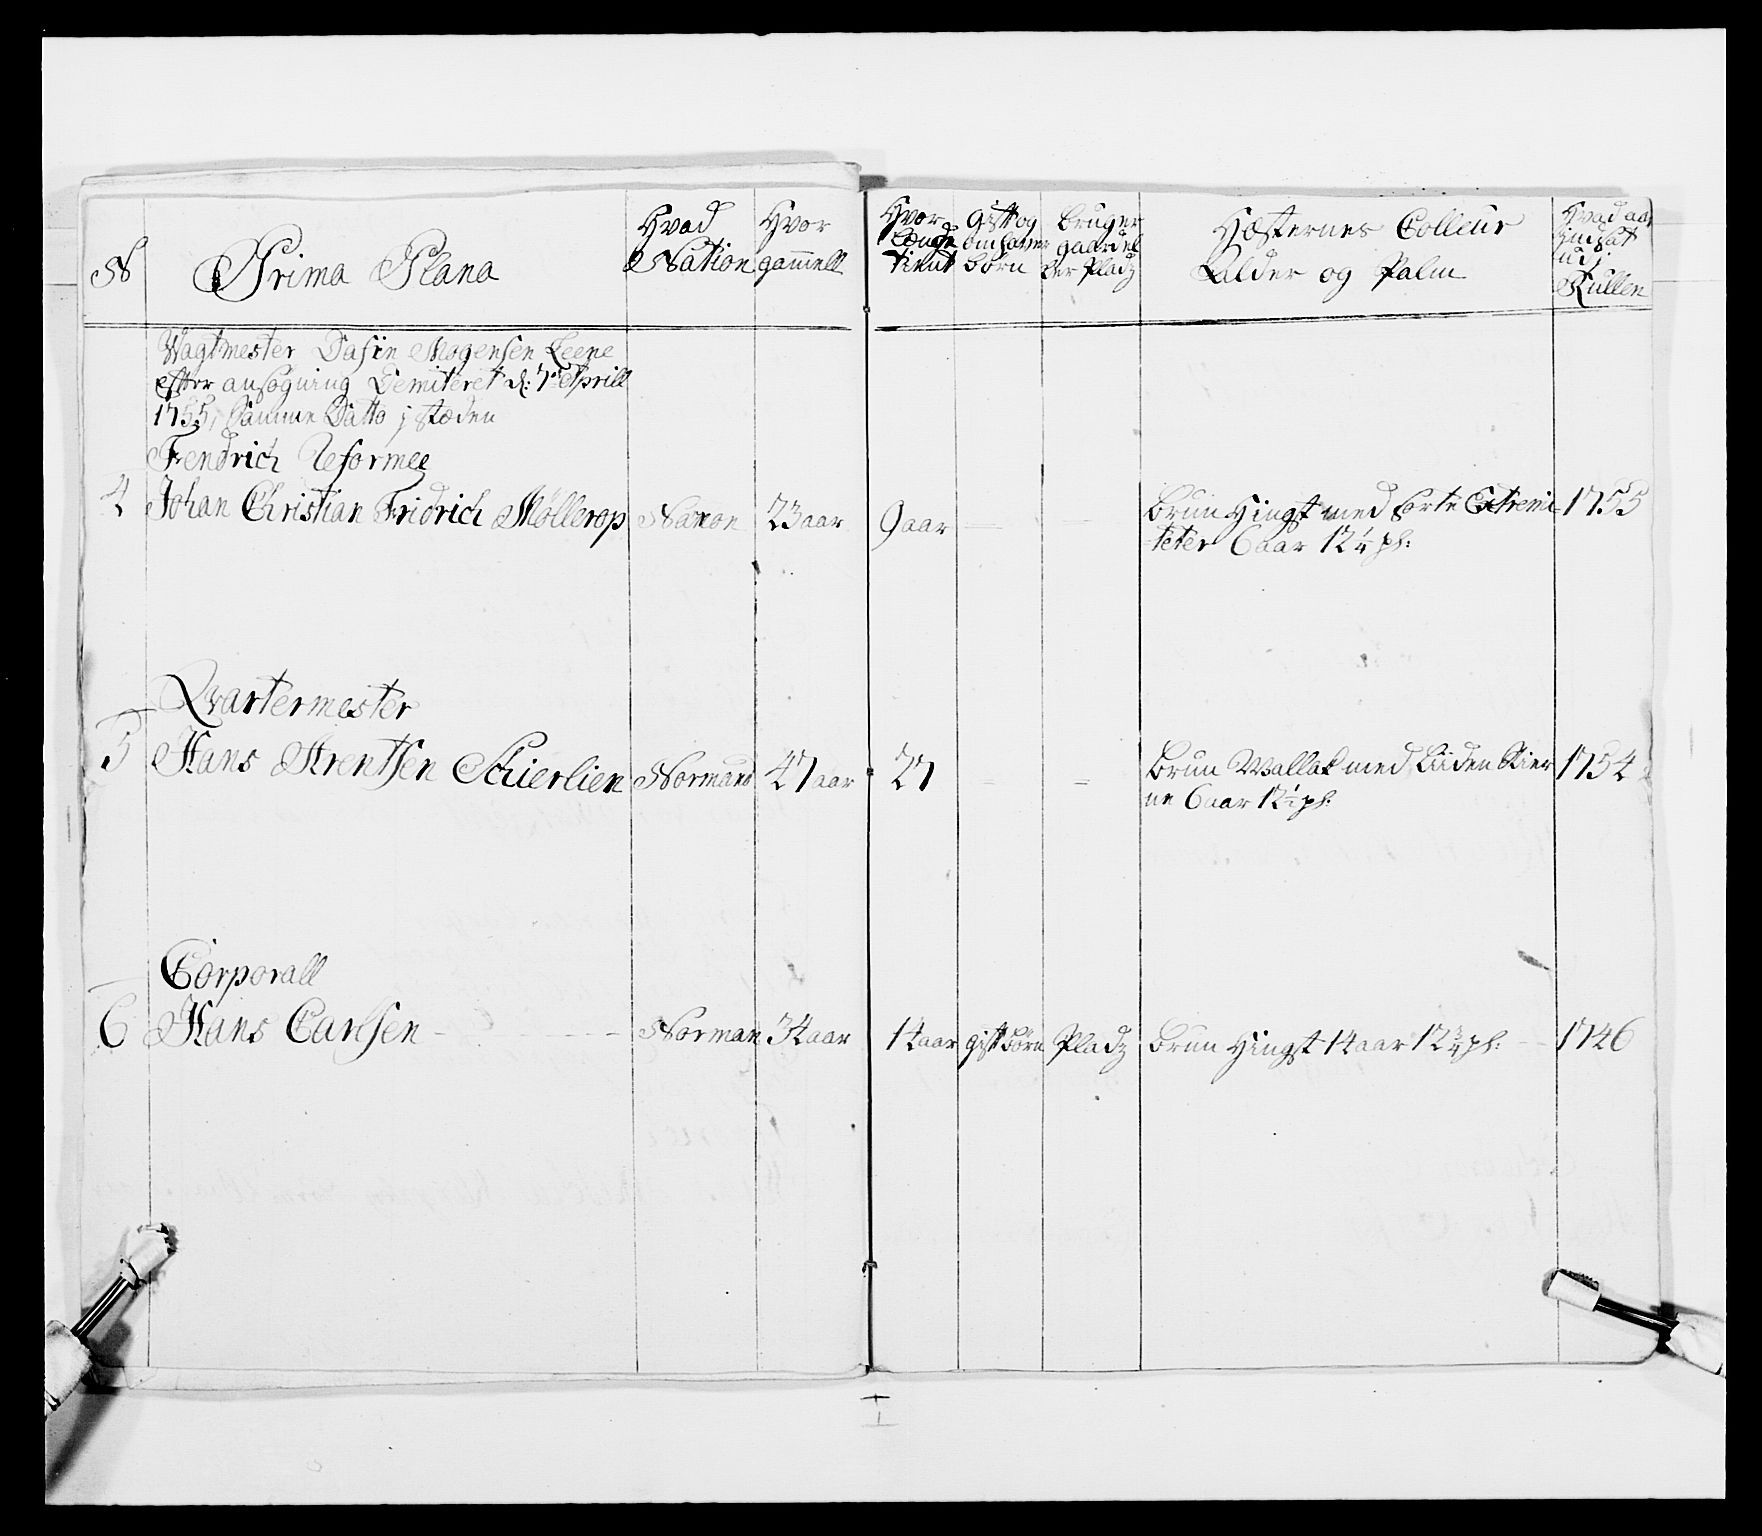 N
Prima Plana
Hvad
Nation
Hvor
gamell
Hvor
Længe
tient
Gift og
om haver
børn
bruger
gaard el
ler Pladz
Hæsternes Colleur
Alder og Palm
Hvad aar
indsat
udj
Rullen
Wagtmester Dafin Mogensen Leene
efter ansøgning Demiteret d: 7de Aprill
1755, Samme Datto j stæden
Fendrich Reformee
4 Johan Christian Fridrich Møllerop Saxon 23 aar 9 aar — — brun Hingst med sorte Extremi- 1755
teter 6 aar 12 1/4 ph:
Qvartermester
5 Hans Arentsen Schierlien Normand 47 aar 27 = = brun Wallak med Liiden Stier 1754
ne 6 aar 12 1/4 ph:
Corporall
6 Hans Carlsen - - - - Norman 34 aar 14 aar gift børn Pladz brun Hingst 14 aar 12 3/4 ph: - - 1746